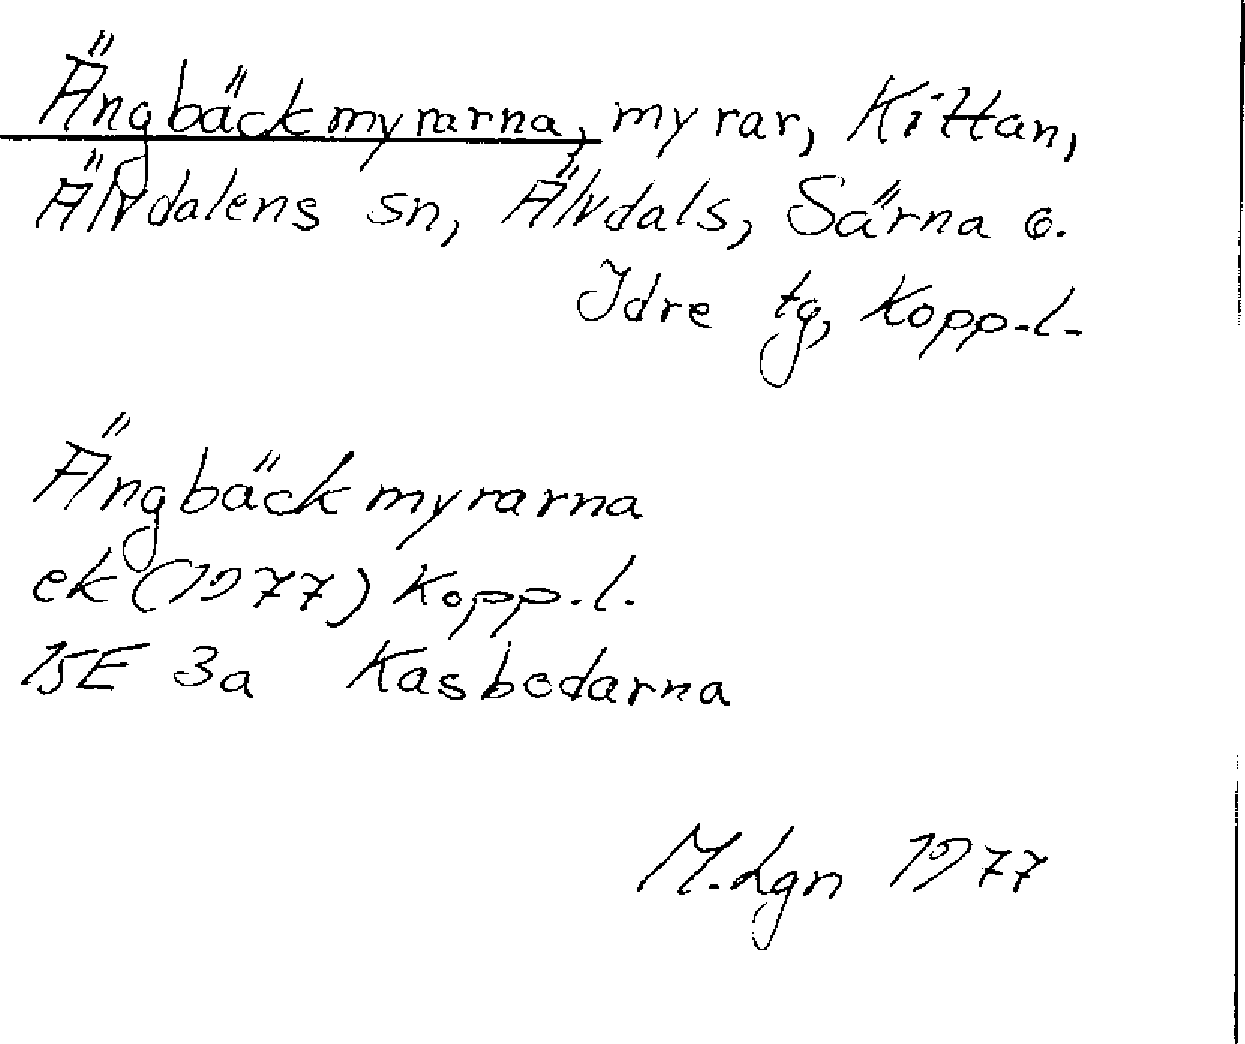 Ängbäckmyrarna, myrar, Kittan,
Älvdalens sn, Älvdals, Särna o.
Idre tg, Kopp.l.
Ängbäckmyrarna
ek (1977) Kopp.l.
15E 3a Kasbodarna
M.Lgn 1977